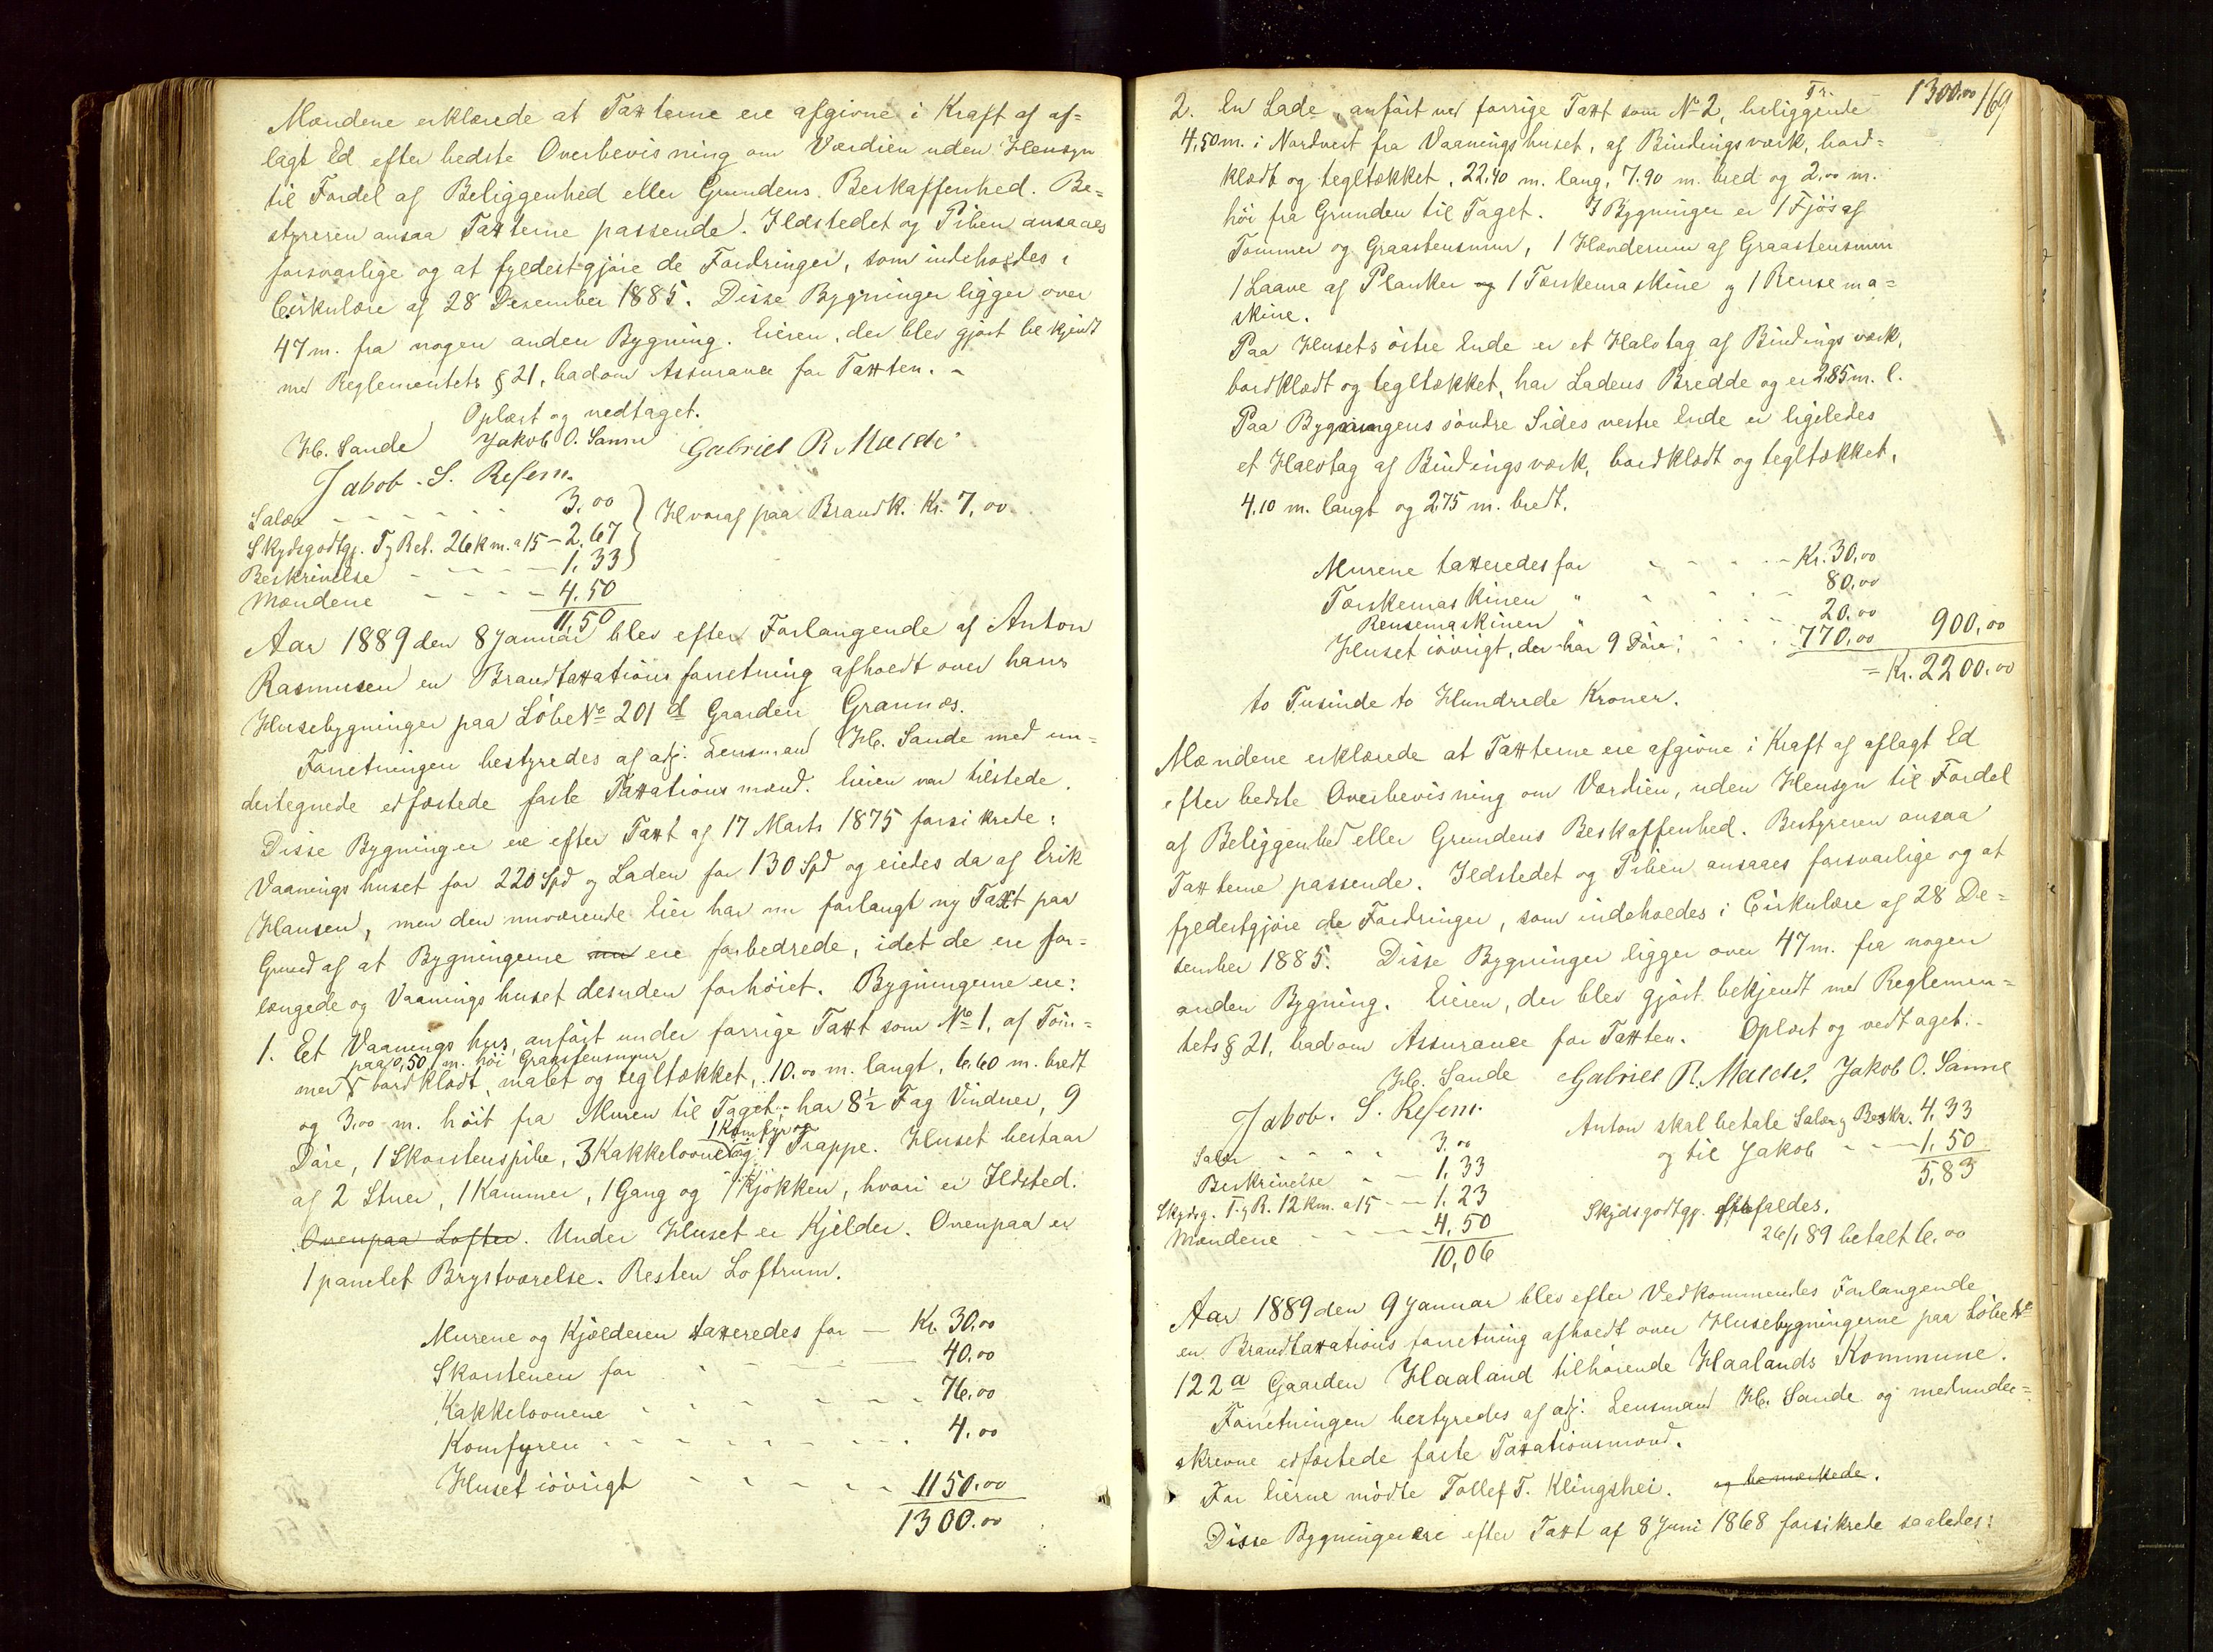 Mændene erklærede at Taxterne ere afgivne i Kraft af af-
lagt Ed efter bedste Overbevisning om Værdien uden Hensyn
til Fordel af Beliggenhed eller Grundens Beskaffenhed. Be-
styreren ansaa Taxterne passende. Ildstedet og Piben ansaaes
forsvarlige og at fyldestgjøre de Fordringer, som indeholdes i
Cirkulære af 28 Desember 1885. Disse Bygninger ligger over
47 m. fra nogen anden Bygning. Eieren, der blev gjørt bekjendt
med Reglementets § 21, bad om Assurance for Taxten. -
Oplæst og vedtaget.
H. Sande Jakob O. Sanne Gabriel R. Malde
Jabob. S. Resem.
Salær - - - - - - 3,00
Skydsgodtgj. T. og Ret. 26 km. a 15 - 2,67
Hvoraf paa Brandk. Kr. 7,00
Beskrivelse - - - - 1,33
Mændene - - - - 4,50
11,50
Aar 1889 den 8 Januar blev efter Forlangende af Anton
Rasmusen en Brandtaxationsforretning afholdt over hans
Husebygninger paa Løbe No 201 d Gaarden Grannæs.
Forretningen bestyredes af adj. Lensmand H. Sande med un-
dertegnede edfæstede faste Taxationsmænd. Eieren var tilstede.
Disse Bygninger ere efter Taxt af 17 Marts 1875 forsikrede:
Vaaningshuset for 220 Spd og Laden for 130 Spd og eiedes da af Erik
Hansen, men den nuværende Eier har nu forlangt ny Taxt paa
Grund af at Bygningerne nu ere forbedrede, idet de ere for-
længede og Vaaningshuset desuden forhøiet. Bygningerne ere:
1. Et Vaaningshus, anført under forrige Taxt som No 1, af Töm-
paa 0,50 m. høi Graastensmur
mer bordklædt, malet og tegltækket, 10.00 m. langt, 6.60 m. bredt
og 3,00 m. høit fra Muren til Taget; har 8½ Fag Vinduer, 9
1 Komfyr og
Døre, 1 Skorstenspibe, 3 Kakkelovne og 1 Trappe. Huset bestaar
af 2 Stuer, 1 Kammer, 1 Gang og 1 Kjøkken, hvori er Ildsted.
Ovenpaa Lofter. Under Huset er Kjelder. Ovenpaa er
1 panelet Brystværelse. Resten Loftrum.
Murene og Kjælderen taxeredes for - Kr. 30.00
Skorstenen for - - - 40.00
Kakkelovnene - - - - - 76.00
Komfyren - - - - - - 4.00
Huset iøvrigt - - - - 1150.00
1300.00
Tr. 1300.00 169
2. En Lade, anført ved forrige Taxt som No 2, beliggende
4,50 m. i Nordvest fra Vaaningshuset, af Bindingsværk, bord-
klædt og tegltækket, 22.40 m. lang, 7.90 m. bred og 2,00 m.
høi fra Grunden til Taget. I Bygningen er 1 Fjøs af
Tømmer og Graastensmur, 1 Hønderum af Graastensmur
1 Laave af Planker og 1 Tærskemaskine og 1 Rensema-
skine.
Paa Husets østre Ende er et Halvtag af Bindingsværk,
bordklædt og tegltækket, har Ladens Bredde og er 2,85 m. l.
Paa Bygningens søndre Sides vestre Ende er ligeledes
et Halvtag af Bindingsværk, bordklædt og tegltækket,
4,10 m. langt og 2,75 m. bredt.
Murene taxeredes for - - - - Kr. 30,00
Tærskemaskinen " - - - - 80,00
Rensemaskinen " - - - - 20.00
Huset iøvrigt, der har 9 Døre - - - 770,00 900,00
= Kr. 2200.00
to Tusinde to Hundrede Kroner.
Mændene erklærede at Taxterne ere afgivne i Kraft af aflagt Ed
efter bedste Overbevisning om Værdien, uden Hensyn til Fordel
af Beliggenhed eller Grundens Beskaffenhed. Bestyreren ansaa
Taxterne passende. Ildstedet og Piben ansaaes forsvarlige og at
fyldestgjøre de Fordringer, som indeholdes i Cirkulære af 28 De-
sember 1885. Disse Bygninger ligger over 47 m. fra nogen
anden Bygning. Eieren, der blev gjørt bekjendt med Reglemen-
tets § 21, bad om Assurance for Taxten. Oplæst og vedtaget.
H. Sande Gabriel R. Malde. Jakob O. Sanne
Jabob. S. Resem.
Anton skal betale Salær og Beskr. 4,33
Salær - - - - 3.00
og til Jakob - - - 1,50
Beskrivelse - - 1,33
5,83
Skydsg. T. og R. 12 km. a 15 - - 1,23
Skydsgodtgj. frafaldes.
Mændene - - - - 4,50
26/1 89 betalt 6.00
10,06
Aar 1889 den 9 Januar blev efter Vedkommendes Forlangende
en Brandtaxationsforretning afholdt over Husebygningerne paa Løbe No
122 a Gaarden Haaland tilhørende Haalands Kommune.
Forretningen bestyredes af adj. Lensmand H. Sande og medunder-
skrevne edfæstede faste Taxationsmænd.
For Eierne mødte Tollef T. Klingshei. og bemærkede.
Disse Bygninger ere efter Taxt af 8 Juni 1868 forsikrede saaledes: